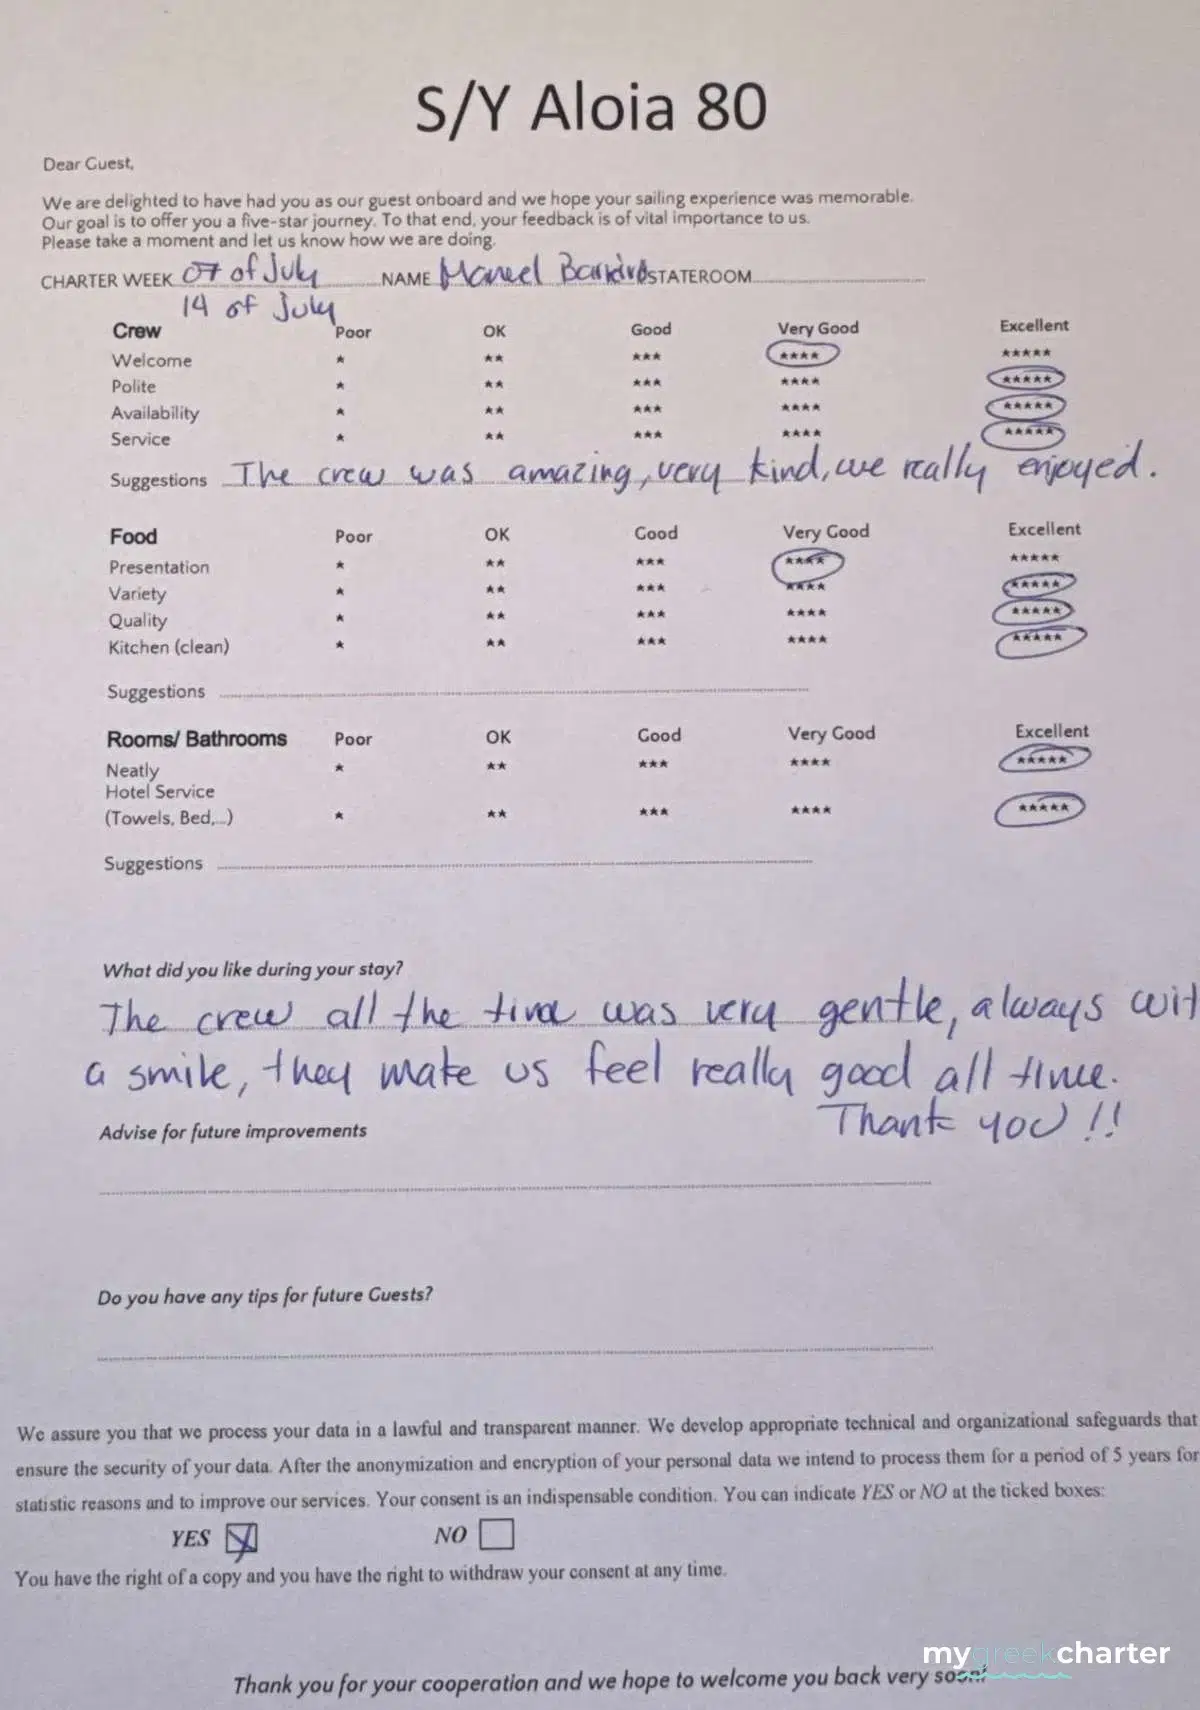 S/Y Aloia 80
Dear Guest,
We are delighted to have had you as our guest onboard and we hope your sailing experience was memorable.
Our goal is to offer you a five-star journey. To that end, your feedback is of vital importance to us.
Please take a moment and let us know how we are doing.
CHARTER WEEK 07 of July NAME STATEROOM
14 of July
Crew Poor OK Good Very Good Excellent
Welcome * ** *** **** *****
Polite * ** *** **** *****
Availability * ** *** **** *****
Service * ** *** **** *****
Suggestions The crew was amazing, very kind, we really enjoyed.
Food Poor OK Good Very Good Excellent
Presentation * ** *** **** *****
Variety * ** *** **** *****
Quality * ** *** **** *****
Kitchen (clean) * ** *** **** *****
Suggestions
Rooms/ Bathrooms Poor OK Good Very Good Excellent
Neatly * ** *** **** *****
Hotel Service
(Towels, Bed,...) * ** *** **** *****
Suggestions
What did you like during your stay?
The crew all the time was very gentle, always wit
a smile, they make us feel really good all time.
Thank you !!
Advise for future improvements
Do you have any tips for future Guests?
We assure you that we process your data in a lawful and transparent manner. We develop appropriate technical and organizational safeguards that
ensure the security of your data. After the anonymization and encryption of your personal data we intend to process them for a period of 5 years for
statistic reasons and to improve our services. Your consent is an indispensable condition. You can indicate YES or NO at the ticked boxes:
YES NO
You have the right of a copy and you have the right to withdraw your consent at any time.
mygreekcharter
Thank you for your cooperation and we hope to welcome you back very soon!